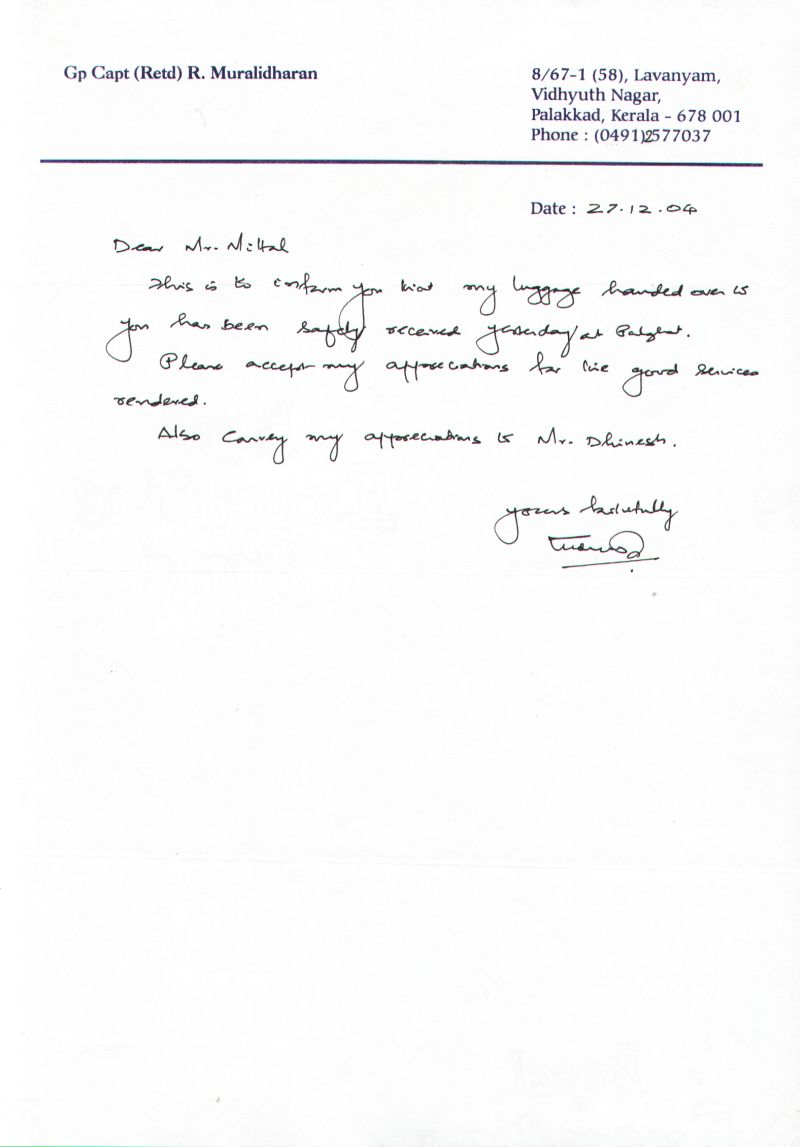 Gp Capt (Retd) R. Muralidharan
8/67-1 (58), Lavanyam,
Vidhyuth Nagar,
Palakkad, Kerala - 678 001
Phone : (0491)2577037
Date : 27.12.04
Dear Mr. Mittal
This is to inform you that my luggage handed over to
you has been safely received yesterday at Palghat.
Please accept my appreciations for the good services
rendered.
Also convey my appreciations to Mr. Dhinesh.
Yours faithfully